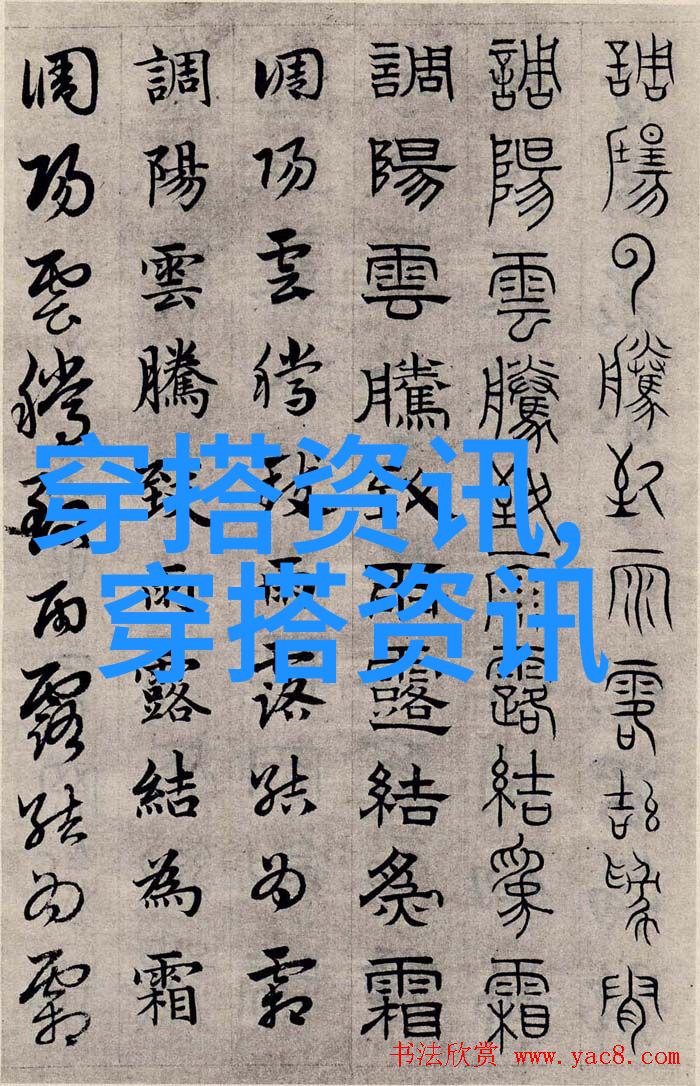 調陽雲騰致雨露結為霜
調陽雲騰致雨露結為霜
調陽雲騰致雨露結為霜
調陽雲騰致雨露結為霜
調陽雲騰致雨露結為霜
調陽雲騰致雨露結為霜
穿搭资讯,
穿搭资讯
书法欣赏 www.yac8.com